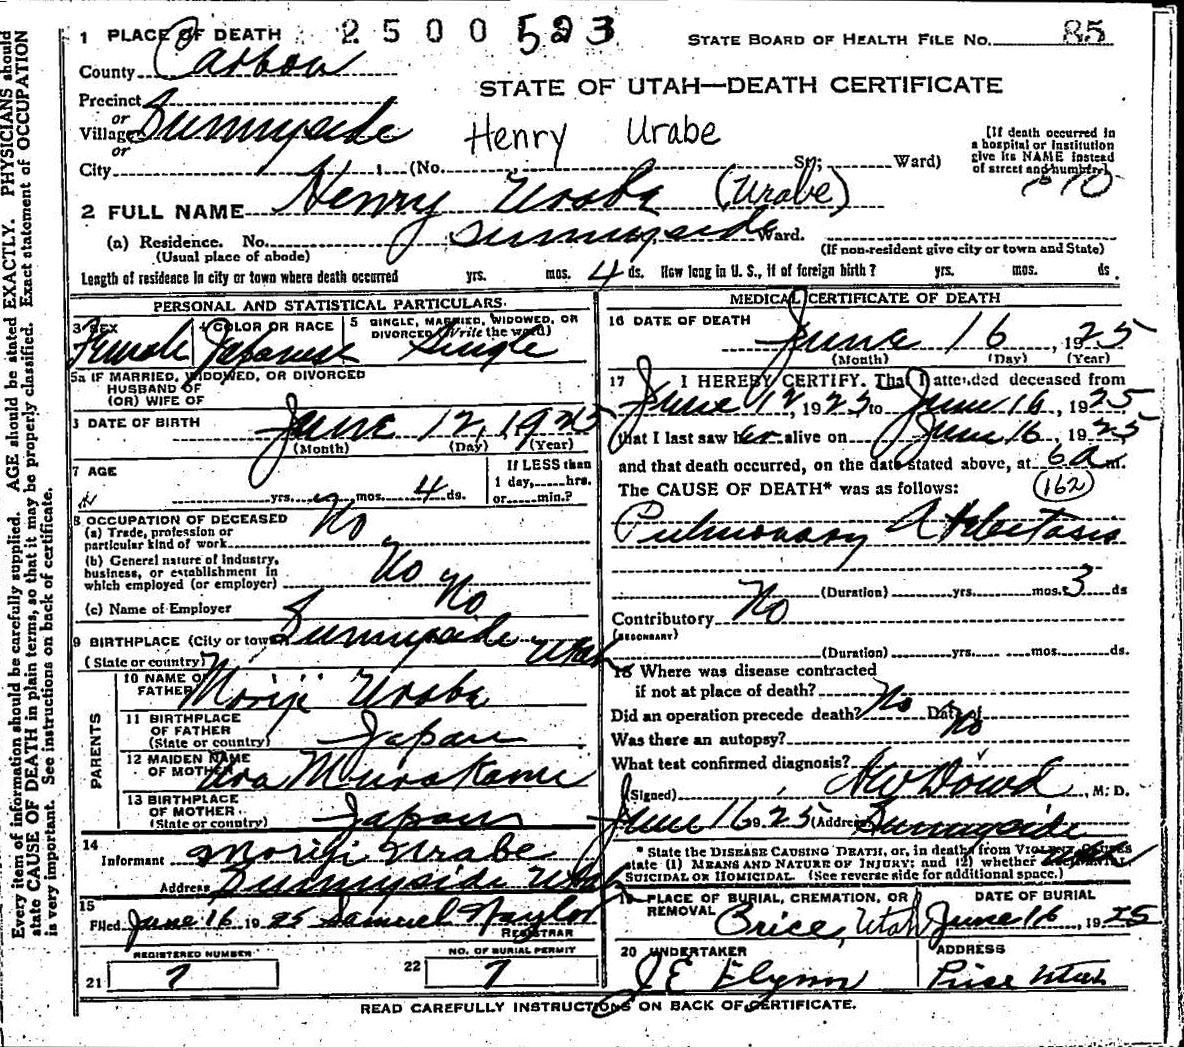 1 PLACE OF DEATH 2500523 STATE BOARD OF HEALTH FILE No. 85
County Carbon
STATE OF UTAH—DEATH CERTIFICATE
Precinct
or
Village Sunnyside Henry Urabe
or
City (No. St; Ward)
[If death occurred in
a hospital or institution
give its NAME instead
of street and number]
2 FULL NAME Henry Urabe (Urabe)
(a) Residence. No. Sunnyside Ward.
(Usual place of abode) (If non-resident give city or town and State)
Length of residence in city or town where death occurred yrs. mos. 4 ds. How long in U. S., if of foreign birth? yrs. mos. ds.
PERSONAL AND STATISTICAL PARTICULARS.
3 SEX 4 COLOR OR RACE 5 SINGLE, MARRIED, WIDOWED, OR DIVORCED (Write the word)
Female Japanese Single
5a IF MARRIED, WIDOWED, OR DIVORCED
HUSBAND OF
(OR) WIFE OF
DATE OF BIRTH June 12, 1925
(Month) (Day) (Year)
7 AGE If LESS than
1 day, hrs.
yrs. mos. 4 ds. or min.?
8 OCCUPATION OF DECEASED
(a) Trade, profession or
particular kind of work No
(b) General nature of industry,
business, or establishment in
which employed (or employer) No
(c) Name of Employer No
9 BIRTHPLACE (City or town) Sunnyside
(State or country) Utah
PARENTS
10 NAME OF
FATHER Moriji Urabe
11 BIRTHPLACE
OF FATHER
(State or country) Japan
12 MAIDEN NAME
OF MOTHER Murakami
13 BIRTHPLACE
OF MOTHER
(State or country) Japan
14
Informant Moriji Urabe
Address Sunnyside Utah
15
Filed June 16 1925 Samuel Naylor
REGISTRAR
REGISTERED NUMBER NO. OF BURIAL PERMIT
21 7 22 7
MEDICAL CERTIFICATE OF DEATH
16 DATE OF DEATH
June 16, 1925
(Month) (Day) (Year)
17 I HEREBY CERTIFY. That I attended deceased from
June 12, 1925 to June 16, 1925
that I last saw her alive on June 16, 1925
and that death occurred, on the date stated above, at 6 a m.
The CAUSE OF DEATH* was as follows: (162)
Pulmonary Atelectasis
(Duration) yrs. mos. 3 ds
Contributory No
(SECONDARY)
(Duration) yrs. mos. ds.
18 Where was disease contracted
if not at place of death?
Did an operation precede death? No Date of
Was there an autopsy? No
What test confirmed diagnosis?
(Signed) Dowd, M. D.
June 16 1925 (Address) Sunnyside
* State the DISEASE CAUSING DEATH, or, in deaths from VIOLENT CAUSES
state (1) MEANS AND NATURE OF INJURY; and (2) whether
SUICIDAL OR HOMICIDAL. (See reverse side for additional space.)
19 PLACE OF BURIAL, CREMATION, OR REMOVAL DATE OF BURIAL
Price, Utah June 16, 1925
20 UNDERTAKER ADDRESS
J E Flynn Price Utah
READ CAREFULLY INSTRUCTIONS ON BACK OF CERTIFICATE.
Every item of information should be carefully supplied. AGE should be stated EXACTLY. PHYSICIANS should
state CAUSE OF DEATH in plain terms, so that it may be properly classified. Exact statement of OCCUPATION
is very important. See instructions on back of certificate.